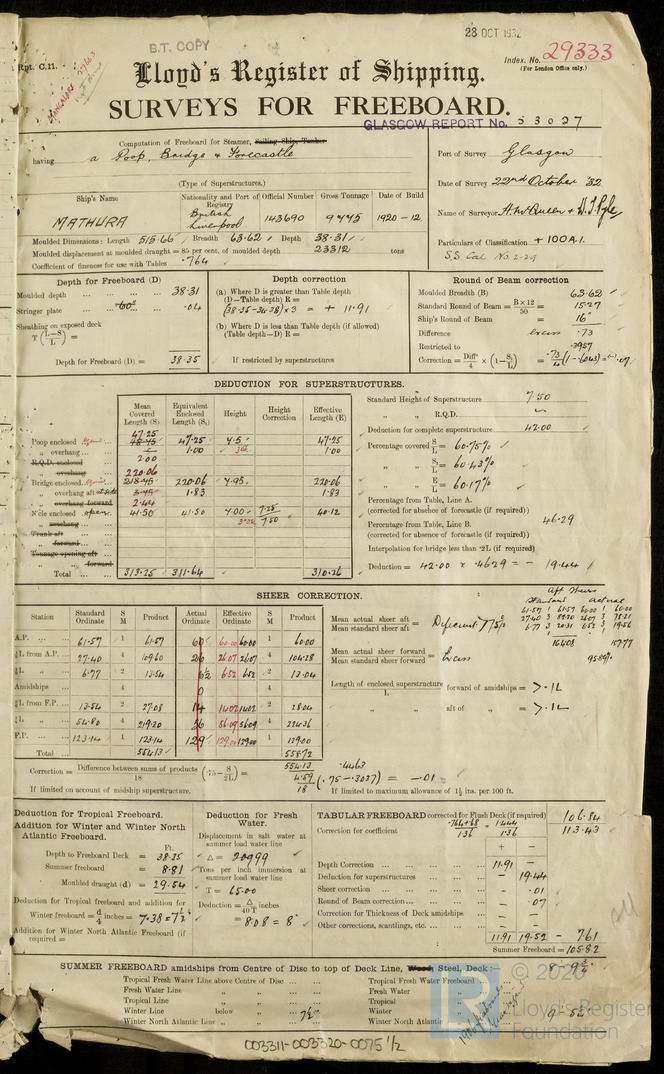 28 OCT 1932
B.T. COPY
Rpt. C.11.
Index. No. 29333
(For London Office only.)
Lloyd's Register of Shipping.
SURVEYS FOR FREEBOARD.
GLASGOW REPORT No. 53027
Computation of Freeboard for Steamer, Sailing Ship, Tanker
having a Poop, Bridge & Forecastle
(Type of Superstructures.)
Port of Survey Glasgow
Date of Survey 22nd October '32
Name of Surveyor
Particulars of Classification + 100 A.1.
S.S. Cal No. 2-29
Ship's Name
Nationality and Port of Registry
Official Number
Gross Tonnage
Date of Build
MATHURA
British Liverpool
143690
1920-12
Moulded Dimensions: Length 515.66 Breadth 63.62 Depth 38.31
Moulded displacement at moulded draught = 85 per cent. of moulded depth 23312 tons
Coefficient of fineness for use with Tables .764
Depth for Freeboard (D)
Moulded depth 38.31
Stringer plate .04
Sheathing on exposed deck
T (L-S / L) =
Depth for Freeboard (D) = 38.35
Depth correction
(a) Where D is greater than Table depth
(D-Table depth) R =
(38.35-34.38) x 3 = + 11.91
(b) Where D is less than Table depth (if allowed)
(Table depth-D) R =
If restricted by superstructures
Round of Beam correction
Moulded Breadth (B) 63.62
Standard Round of Beam = B x 12 / 50 = 15.27
Ship's Round of Beam = 16"
Difference Excess .73
Restricted to .3957
Correction = Diff / 4 x (1 - S₁ / L) = .73 / 4 (1-.6043) = -.07
DEDUCTION FOR SUPERSTRUCTURES.
Mean Covered Length (S)
Equivalent Enclosed Length (S₁)
Height
Height Correction
Effective Length (E)
Poop enclosed 47.25 47.25 7.5 47.25
" overhang 2.00 1.00 1.00
R.Q.D. enclosed
" overhang
Bridge enclosed 220.06 220.06 7.95 220.06
" overhang aft 2.44 1.83 1.83
" overhang forward
F'cle enclosed 41.50 41.50 7.00 7.25 / 7.50 40.12
" overhang
Trunk aft
" forward
Tonnage opening aft
" forward
Total 313.25 311.64 310.26
Standard Height of Superstructure 7.50
" " R.Q.D. -
Deduction for complete superstructure 42.00
Percentage covered S / L = 60.75%
" " S₁ / L = 60.43%
" " E / L = 60.17%
Percentage from Table, Line A.
(corrected for absence of forecastle (if required))
Percentage from Table, Line B. 46.29
(corrected for absence of forecastle (if required))
Interpolation for bridge less than ·2L (if required)
Deduction = 42.00 x .4629 = - 19.44
SHEER CORRECTION.
Station
Standard Ordinate
S M
Product
Actual Ordinate
Effective Ordinate
S M
Product
A.P. 61.57 1 61.57 60 60.00 60.00 1 60.00
⅙L from A.P. 27.40 4 109.60 26 26.07 26.07 4 104.28
⅓L " 6.77 2 13.54 6½ 6.52 6.52 2 13.04
Amidships 4 0 4
⅓L from F.P. 13.54 2 27.08 14 14.02 14.02 2 28.04
⅙L " 54.80 4 219.20 56 56.09 56.09 4 224.36
F.P. 123.14 1 123.14 129 129.00 129.00 1 129.00
Total 554.13 558.72
Aft Sheer
Standard Actual
61.57 1 61.57 60.00 1 60.00
27.40 3 82.20 26.07 3 78.21
6.77 3 20.31 6.52 3 19.56
164.08 157.77
95.89%
Mean actual sheer aft / Mean standard sheer aft = Deficient
Mean actual sheer forward / Mean standard sheer forward = Excess
Length of enclosed superstructure / L forward of amidships = >.1L
" " aft of " = >.1L
Correction = Difference between sums of products / 18 (·75 - S / 2L) = 554.13 4.59 / 18 (.75-.3037) = -.01
.4463
If limited on account of midship superstructure.
If limited to maximum allowance of 1½ ins. per 100 ft.
Deduction for Tropical Freeboard.
Addition for Winter and Winter North Atlantic Freeboard.
Ft.
Depth to Freeboard Deck = 38.35
Summer freeboard = 8.81
Moulded draught (d) = 29.54
Deduction for Tropical freeboard and addition for
Winter freeboard = d / 4 inches = 7.38 = 7½"
Addition for Winter North Atlantic Freeboard (if required =
Deduction for Fresh Water.
Displacement in salt water at summer load water line
Δ = 20999
Tons per inch immersion at summer load water line
T = 65.00
Deduction = Δ / 40 T inches
= 8.08 = 8"
TABULAR FREEBOARD corrected for Flush Deck (if required) 106.84
Correction for coefficient .764+.68 / 1.36 = 1.444 / 1.36 113.43
+ -
Depth Correction 11.91 -
Deduction for superstructures - 19.44
Sheer correction - .01
Round of Beam correction - .07
Correction for Thickness of Deck amidships - -
Other corrections, scantlings, etc. - -
11.91 19.52 - 7.61
Summer Freeboard = 105.82
SUMMER FREEBOARD amidships from Centre of Disc to top of Deck Line, Wood, Steel, Deck:
Tropical Fresh Water Line above Centre of Disc
Fresh Water Line " "
Tropical Line " "
Winter Line below " 7½"
Winter North Atlantic Line " "
Tropical Fresh Water Freeboard
Fresh Water "
Tropical "
Winter "
Winter North Atlantic "
© 2020
Lloyd's Register
Foundation
003311-003320-0075 1/2